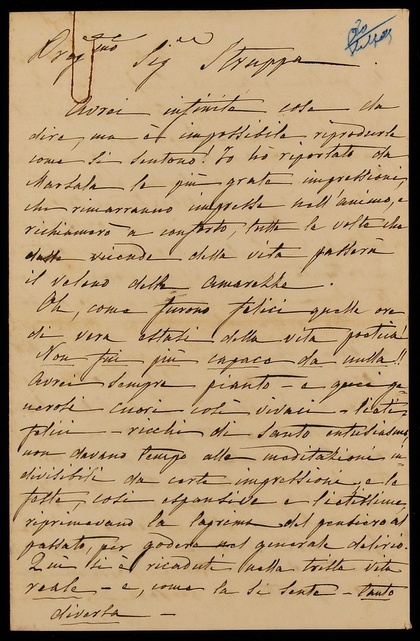 Preg.mo Sig.r Struppa.
Avrei infinite cose da
dire, ma è impossibile riprodurle
come si sentono! Io ho riportato da
Marsala le più grate impressioni,
che rimarranno impresse nell'animo, e
richiamerò a conforto, tutte le volte che
dalle vicende della vita passerà
il veleno delle amarezze.
Oh, come furono felici quelle ore
di vera estasi della vita poetica!
Non fui più capace da nulla!!
Avrei sempre pianto - e quei ge-
nerosi cuori così vivaci - lieti -
felici - ricchi di santo entusiasmo,
non davano tempo alle meditazioni in-
divisibili da certe impressioni, e le
feste, così espansive e lietissime,
reprimevano la lagrima del pensiero al
passato, per godere nel generale delirio.
Qui si è ricaduti nella trista vita
reale - e, come la si sente - tanto
diversa -